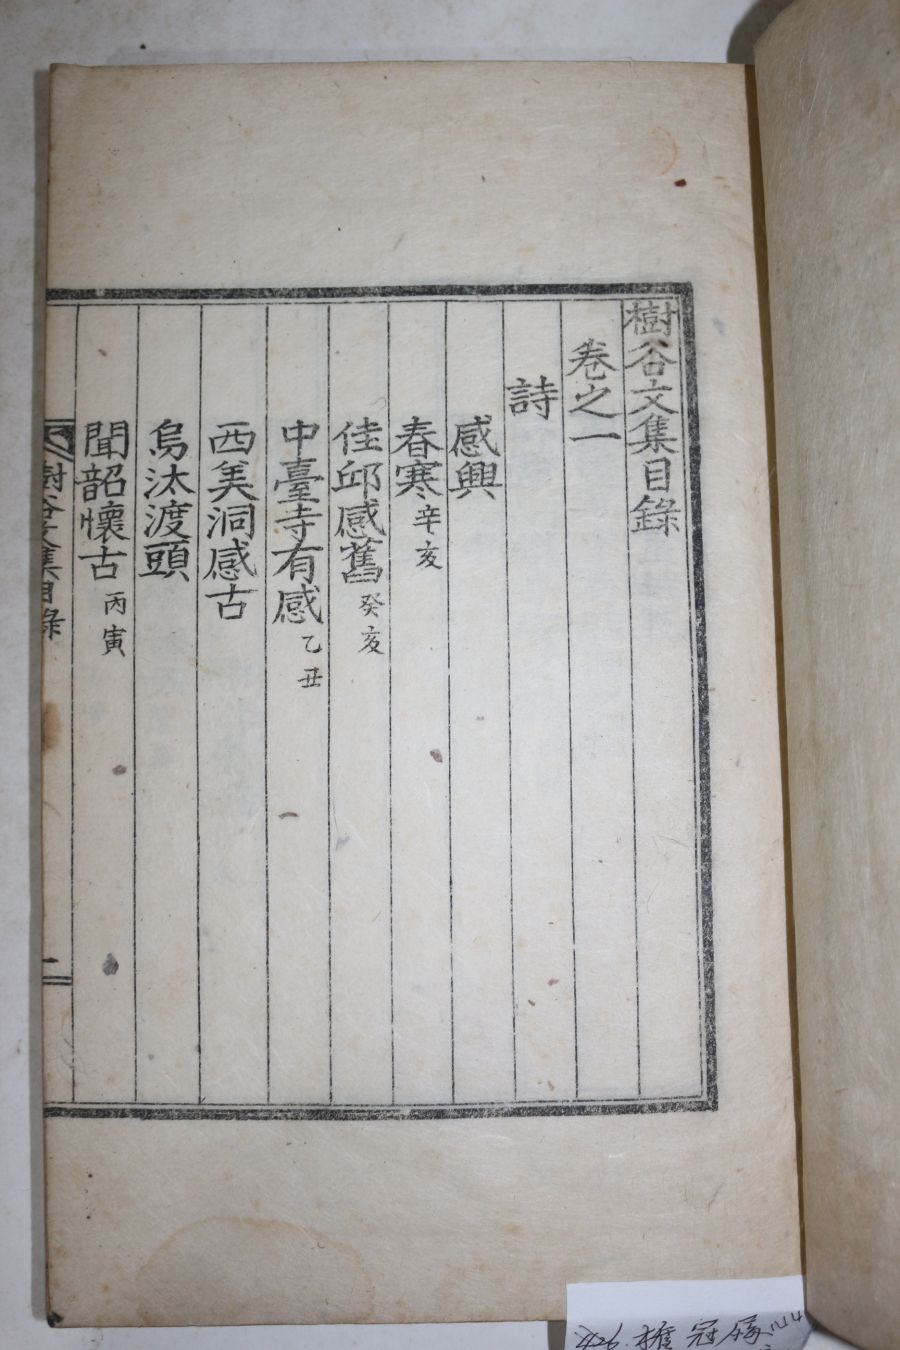 樹谷文集目錄
卷之一
詩
感興
春寒辛亥
佳邱感舊癸亥
中臺寺有感乙丑
西美洞感古
烏汰渡頭
聞韶懷古丙寅
樹谷文集目錄
一
426.
冠